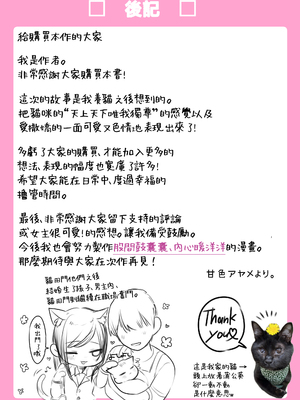 後記
給購買本作的大家
我是作者。
非常感謝大家購買本書!
這次的故事是我養貓之後想到的。
把貓咪的“天上天下唯我獨尊”的感覺以及
愛撒嬌的一面可愛又色情地表現出來了!
多虧了大家的購買、才能加入更多的
想法、表現的幅度也寬廣了許多!
希望大家能在日常中、度過幸福的
擼管時間。
最後、非常感謝大家留下支持的評論
或女主很可愛!的感想。讓我備受鼓勵。
今後我也會努力製作股間鼓囊囊、內心暖洋洋的漫畫。
那麼期待與大家在次作再見!
甘色アヤメより。
結婚生了孩子、男主內、
我出門了哦
Thank
You
這是我家的貓→
頭上放著蒲公英
卻一動不動
是什麼意思